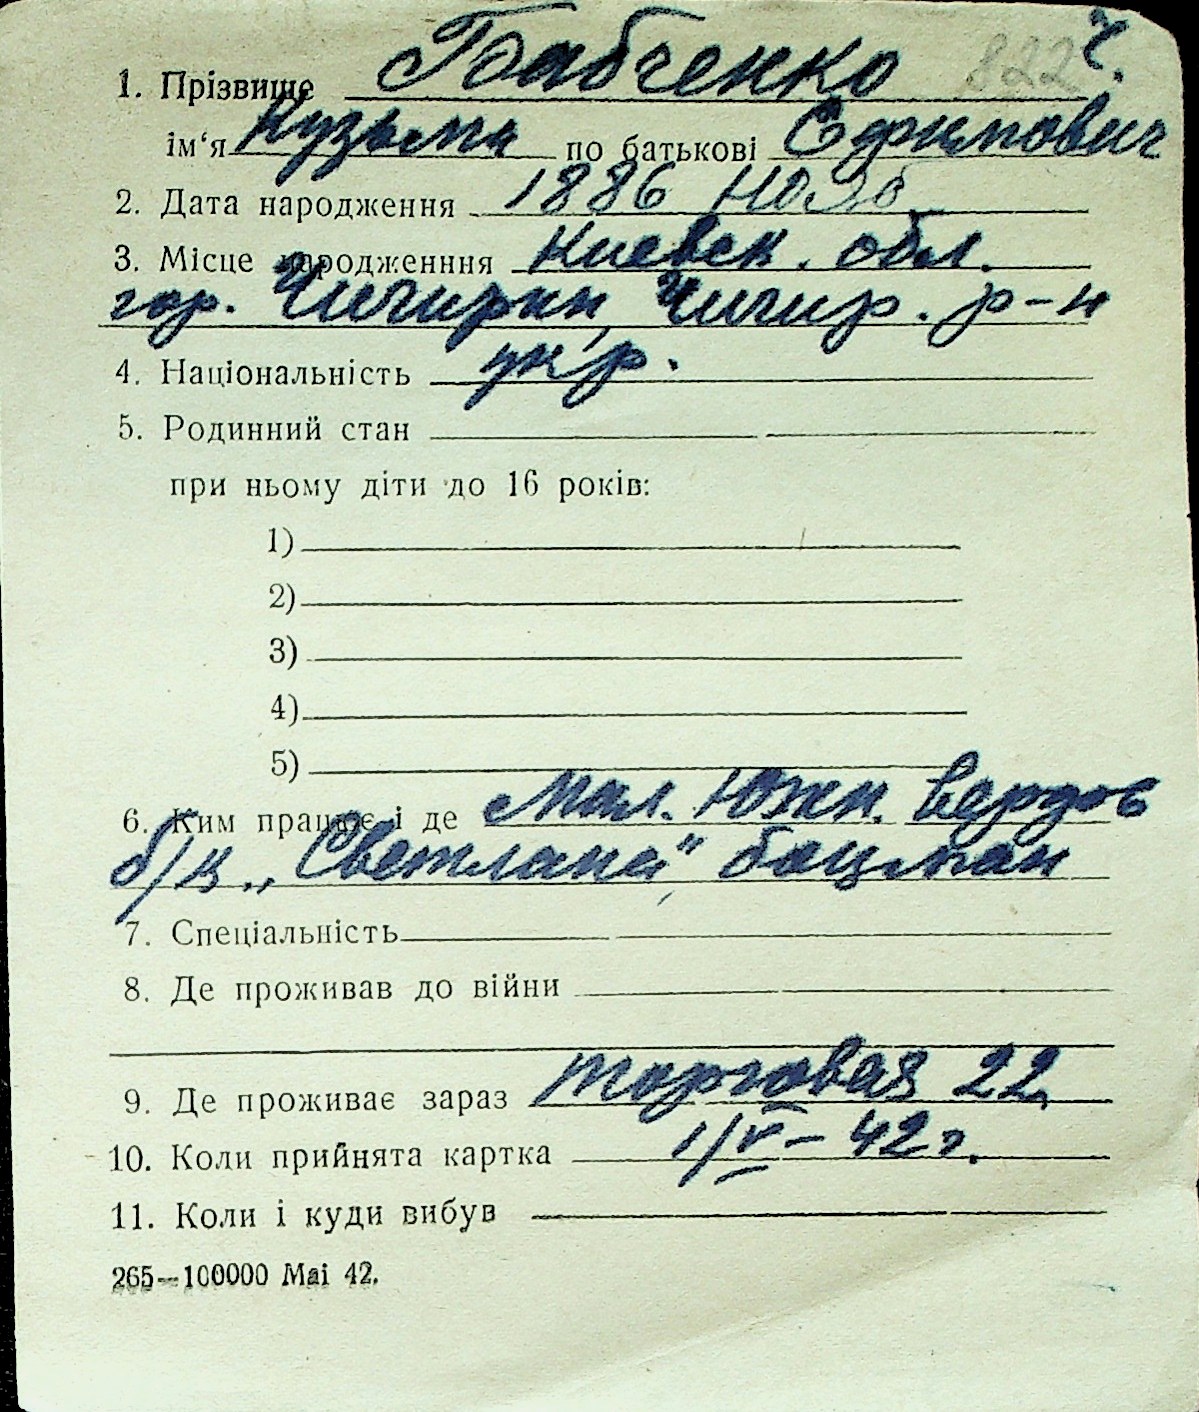 822 ч.
1. Прізвище Бабченко
ім‘я Кузьма по батькові Ефимович
2. Дата народження 1886 нояб.
3. Місце народженння Киевск. обл.
гор. Чигирин, Чигир. р-н
4. Національність укр.
5. Родинний стан
при ньому діти до 16 років:
1)
2)
3)
4)
5)
6. Ким працює і де Мал. Южн. Вердов
б/к „Светлана" боцман
7. Спеціальність
8. Де проживав до війни
9. Де проживає зараз Торговая 22
10. Коли прийнята картка 1/V - 42 г.
11. Коли і куди вибув
265—100000 Mai 42.